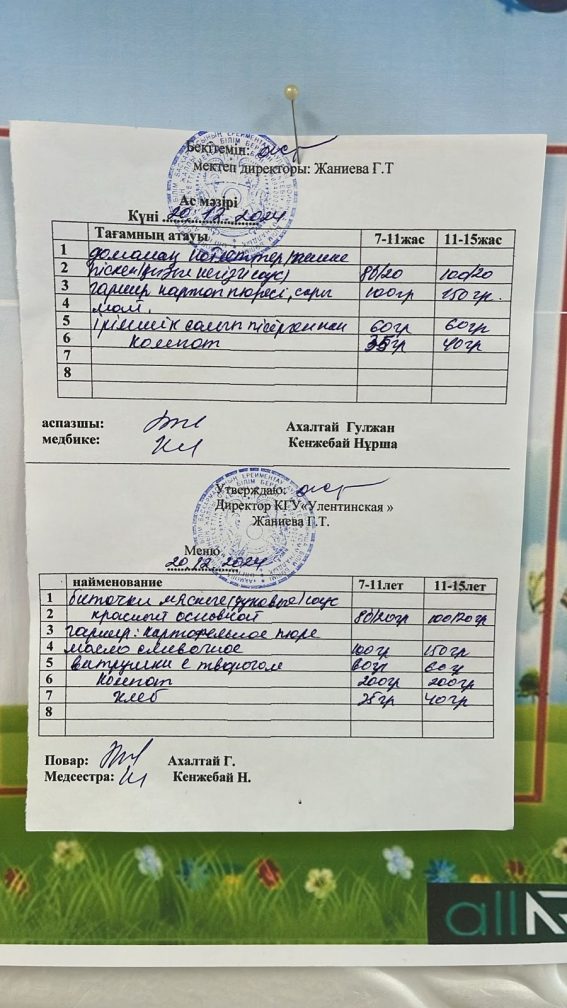 Бекітемін:
мектеп директоры: Жаниева Г.Т
Ас мәзірі
Күні 20.12.2024
Тағамның атауы 7-11жас 11-15жас
1 домалақ
2 80/20 100/20
3 гарнир картоп пюресі, сары 100гр 150гр.
4 май.
5 ірімшік салып пісірген нан 60гр 60гр
6 компот 35гр 40гр
7
8
аспазшы: Ахалтай Гулжан
медбике: Кенжебай Нұрша
Утверждаю:
Директор КГУ«Улентинская »
Жаниева Г.Т.
Меню
20.12.2024
найменование 7-11лет 11-15лет
1 биточки мясные (духовые) соус
2 красный основной 80/20гр 100/20гр
3 гарнир: картофельное пюре
4 масло сливочное 100гр 150гр
5 ватрушки с творогом 60гр 60гр
6 компот 200гр 200гр
7 хлеб 35гр 40гр
8
Повар: Ахалтай Г.
Медсестра: Кенжебай Н.